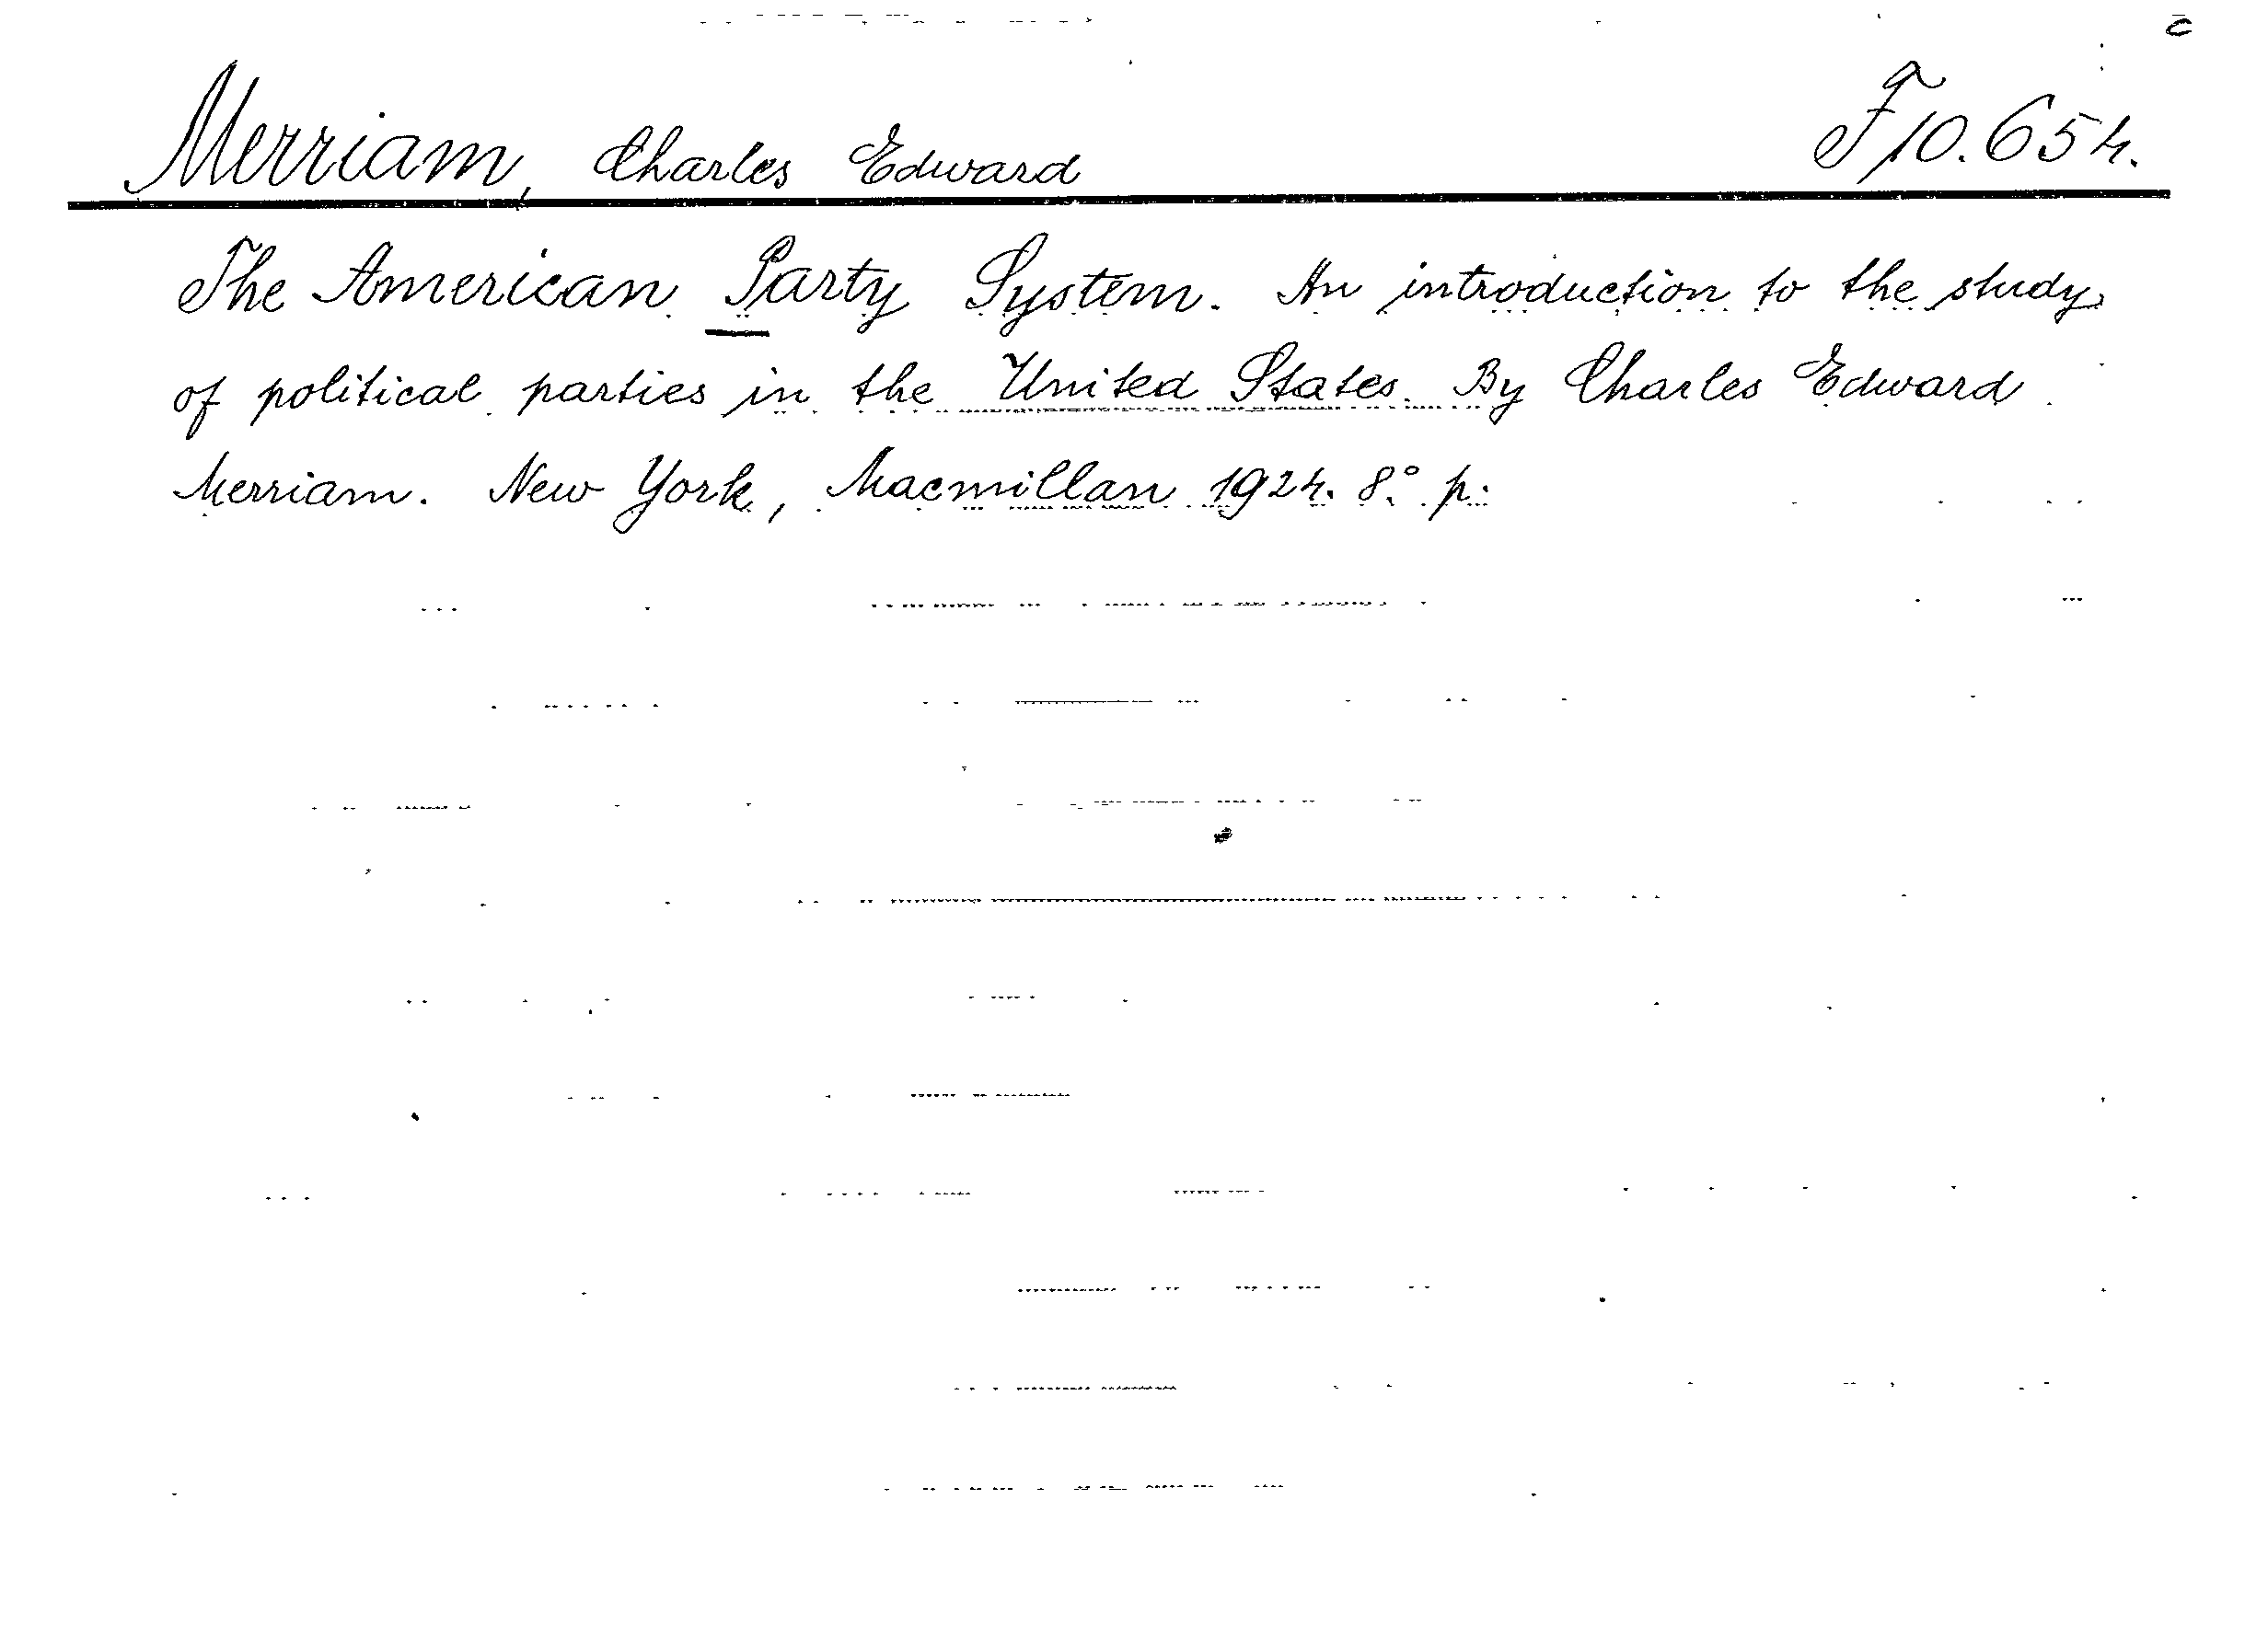 Merriam, Charles Edward F 10.654.
The American Party System. An introduction to the study
of political parties in the United States. By Charles Edward
Merriam. New York, Macmillan 1924. 8.° p.